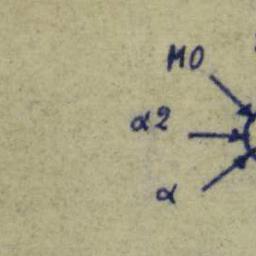 MO
α2
α